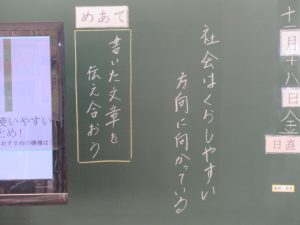 十一月十八日(金)
日直
社会はくらしやすい
方向に向かっている
めあて
書いた文章を
伝え合おう
使いやすい
とめ!
おすすめの機種は!